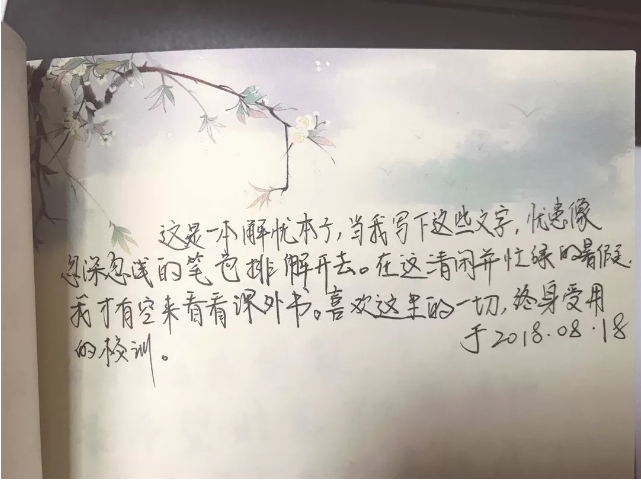 这是一本解忧本子,当我写下这些文字,忧患像
忽深忽浅的笔芯排解开去。在这清闲并忙绿的暑假,
我才有空来看看课外书。喜欢这里的一切,终身受用
的校训。
于2018.08.18